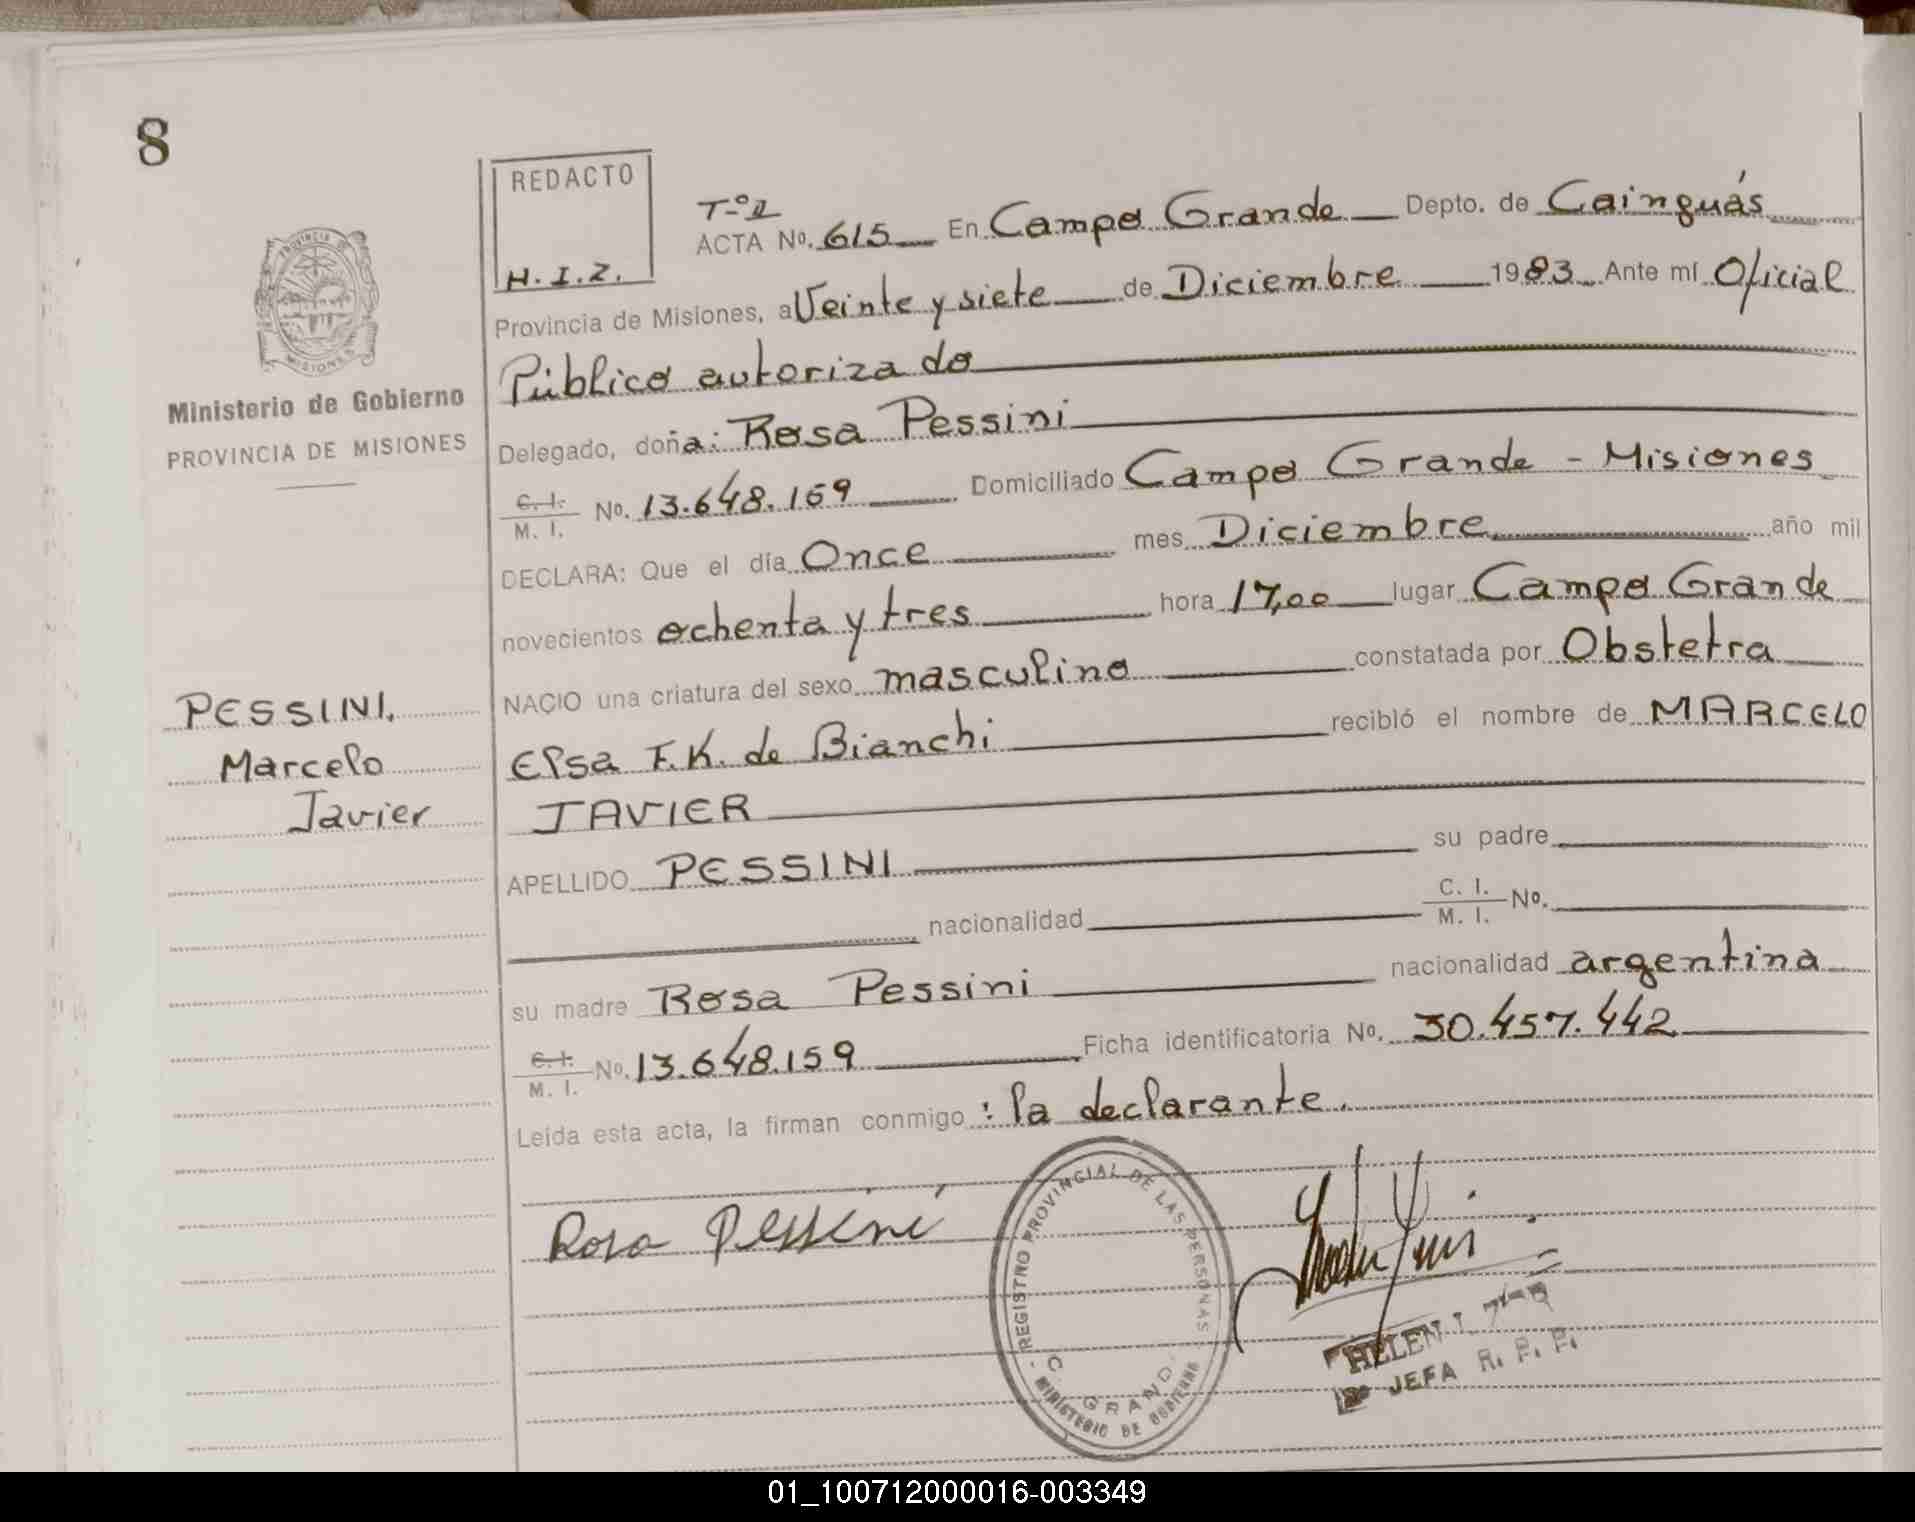 8
REDACTO
H. I. Z.
PROVINCIA DE
MISIONES
Ministerio de Gobierno
PROVINCIA DE MISIONES
PESSINI,
Marcelo
Javier
ACTA No. 615 En Campo Grande Depto. de Cainguás
Provincia de Misiones, a Veinte y siete de Diciembre 1983 Ante mí Oficial
Público autorizado
Delegado, doña: Rosa Pessini
C. I. / M. I. No. 13.648.159 Domiciliado Campo Grande - Misiones
DECLARA: Que el día Once mes Diciembre año mil
novecientos ochenta y tres hora 17,00 lugar Campo Grande
NACIO una criatura del sexo masculino constatada por Obstetra
Elsa F. K. de Bianchi recibió el nombre de MARCELO
JAVIER
APELLIDO PESSINI su padre
nacionalidad C. I. / M. I. No.
su madre Rosa Pessini nacionalidad argentina
C. I. / M. I. No. 13.648.159 Ficha identificatoria No. 30.457.442
Leída esta acta, la firman conmigo : la declarante.
Rosa Pessini
REGISTRO PROVINCIAL DE LAS PERSONAS
C. GRANDE
MINISTERIO DE GOBIERNO
HELEN I.
JEFA R. P. P.
01_100712000016-003349